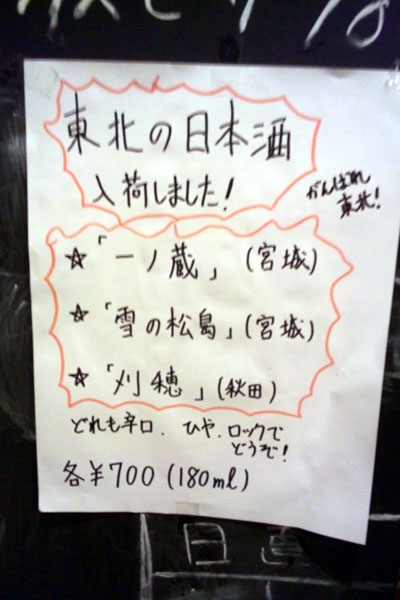 東北の日本酒
入荷しました!
がんばれ
東北!
☆「一ノ蔵」(宮城)
☆「雪の松島」(宮城)
☆「刈穂」(秋田)
どれも辛口、ひや、ロックで
どうぞ!
各¥700(180ml)
日